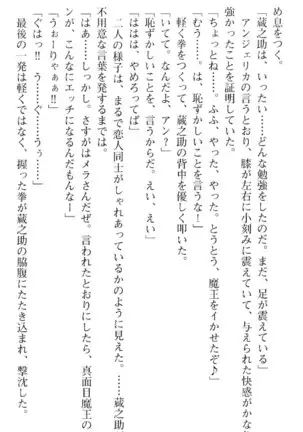 め息をつく。
「蔵之助は、いったい……どんな勉強をしたのだ。まだ、足が震えている」
アンジェリカの言うとおり、膝が左右に小刻みに震えていて、与えられた快感がかな
強かったことを証明していた。
「ちょっとね……。ふふ、やった、やった。とうとう、魔王をイかせたぞ♪」
「むう……。は、恥ずかしいことを言うな！」
軽く拳をつくって、蔵之助の背中を優しく叩いた。
「いてて。なんだよ、アン？」
「恥ずかしいことを、言うからだ。えい、えい」
「はは、やめろってば」
二人の様子は、まるで恋人同士がしゃれあっているかのように見えた。……蔵之助
不用意な言葉を発するまでは。
「はあ……しっかし。さすがはメラさんだぜ。言われたとおりにしたら、真面目魔王の
ンが、こんなにエッチになるんだもんなー」
「うぉーりゃぁぁぁ!!」
「ぐはっ!!　う……ぐ……うぅ……」
最後の一発は軽くではなく、握った拳が蔵之助の脇腹にたたき込まれ、撃沈した。